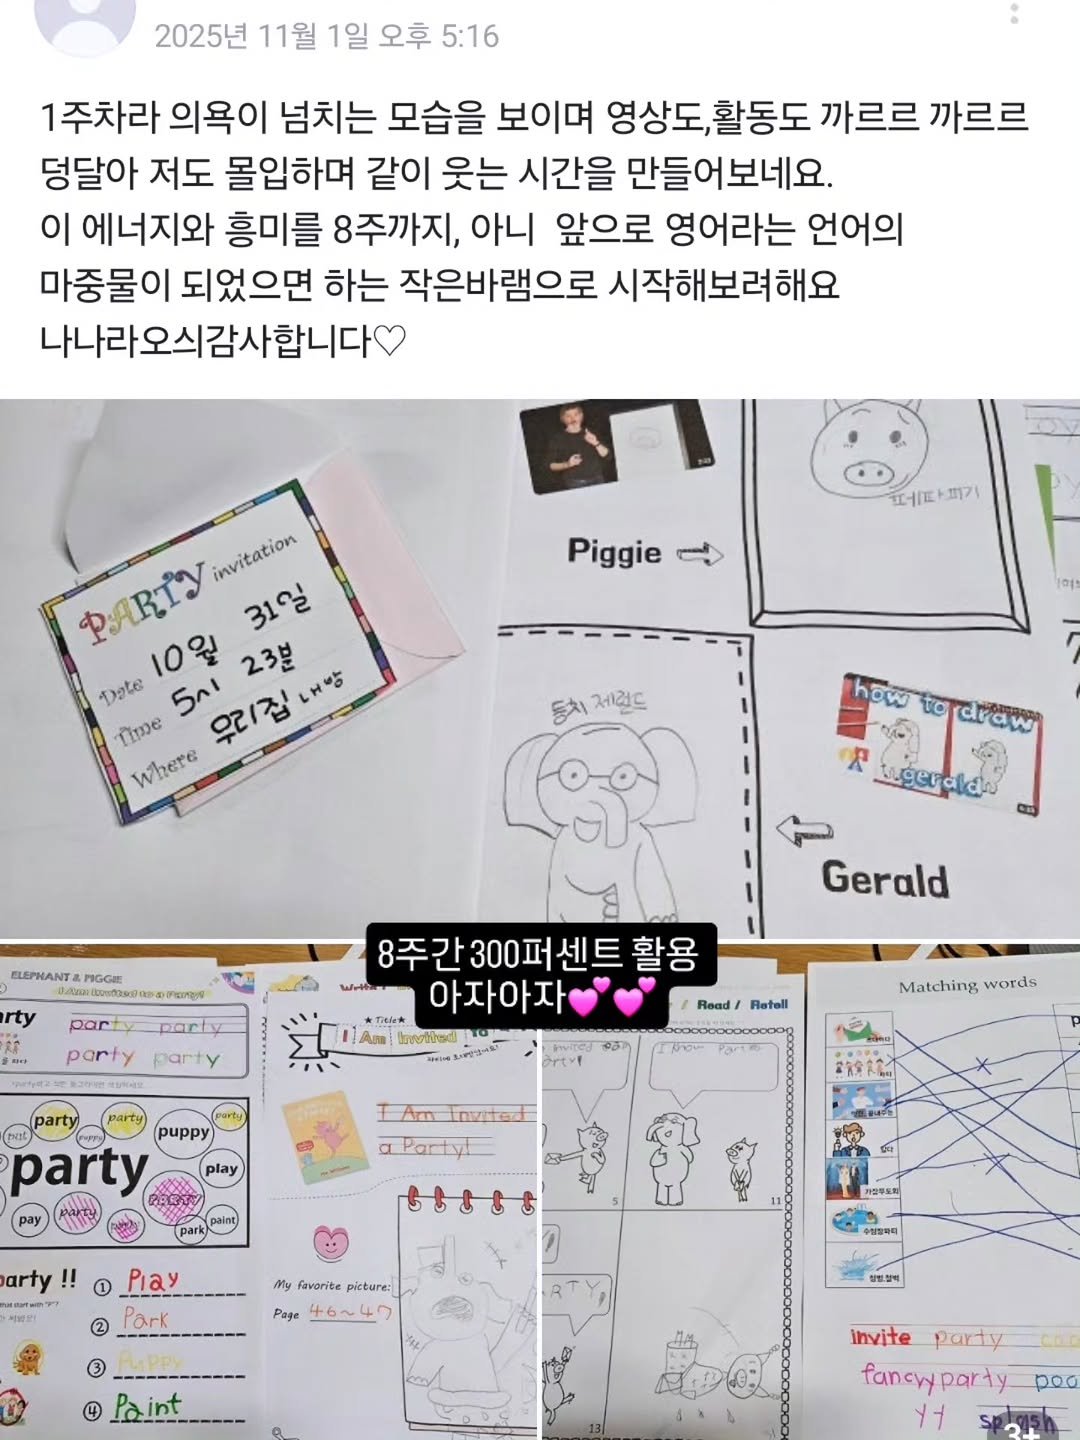 2025년 11월 1일 오후 5:16
1주차라 의욕이 넘치는 모습을 보이며 영상도,활동도 까르르 까르르
덩달아 저도 몰입하며 같이 웃는 시간을 만들어보네요.
이 에너지와 흥미를 8주까지, 아니 앞으로 영어라는 언어의
마중물이 되었으면 하는 작은바램으로 시작해보려해요
나나라오싀감사합니다♡
PARTY invitation
Date 10월 31일
Time 5시 23분
Where 우리집 내방
페파피기
Piggie
동치 제럴드
how to draw
gerald
Gerald
8주간 300퍼센트 활용
아자아자💕💕
ELEPHANT & PIGGIE
I Am Invited to a Party!
party party
party party
party
party
party
puppy
puppy
put
party
play
pay
party
party
PARTY
park
paint
party !!
① Play
② Park
③ Puppy
④ Paint
★Title★
I Am Invited to
I Am Invited
a Party!
My favorite picture:
Page 46~47
/ Read / Retell
I know Parties
PARTY,
5
11
13
Matching words
초대하다
파티
멋진, 끝내주는
알다
가장무도회
수영장파티
첨벙, 철벅
invite party coo
fancy party poo
splash
3+